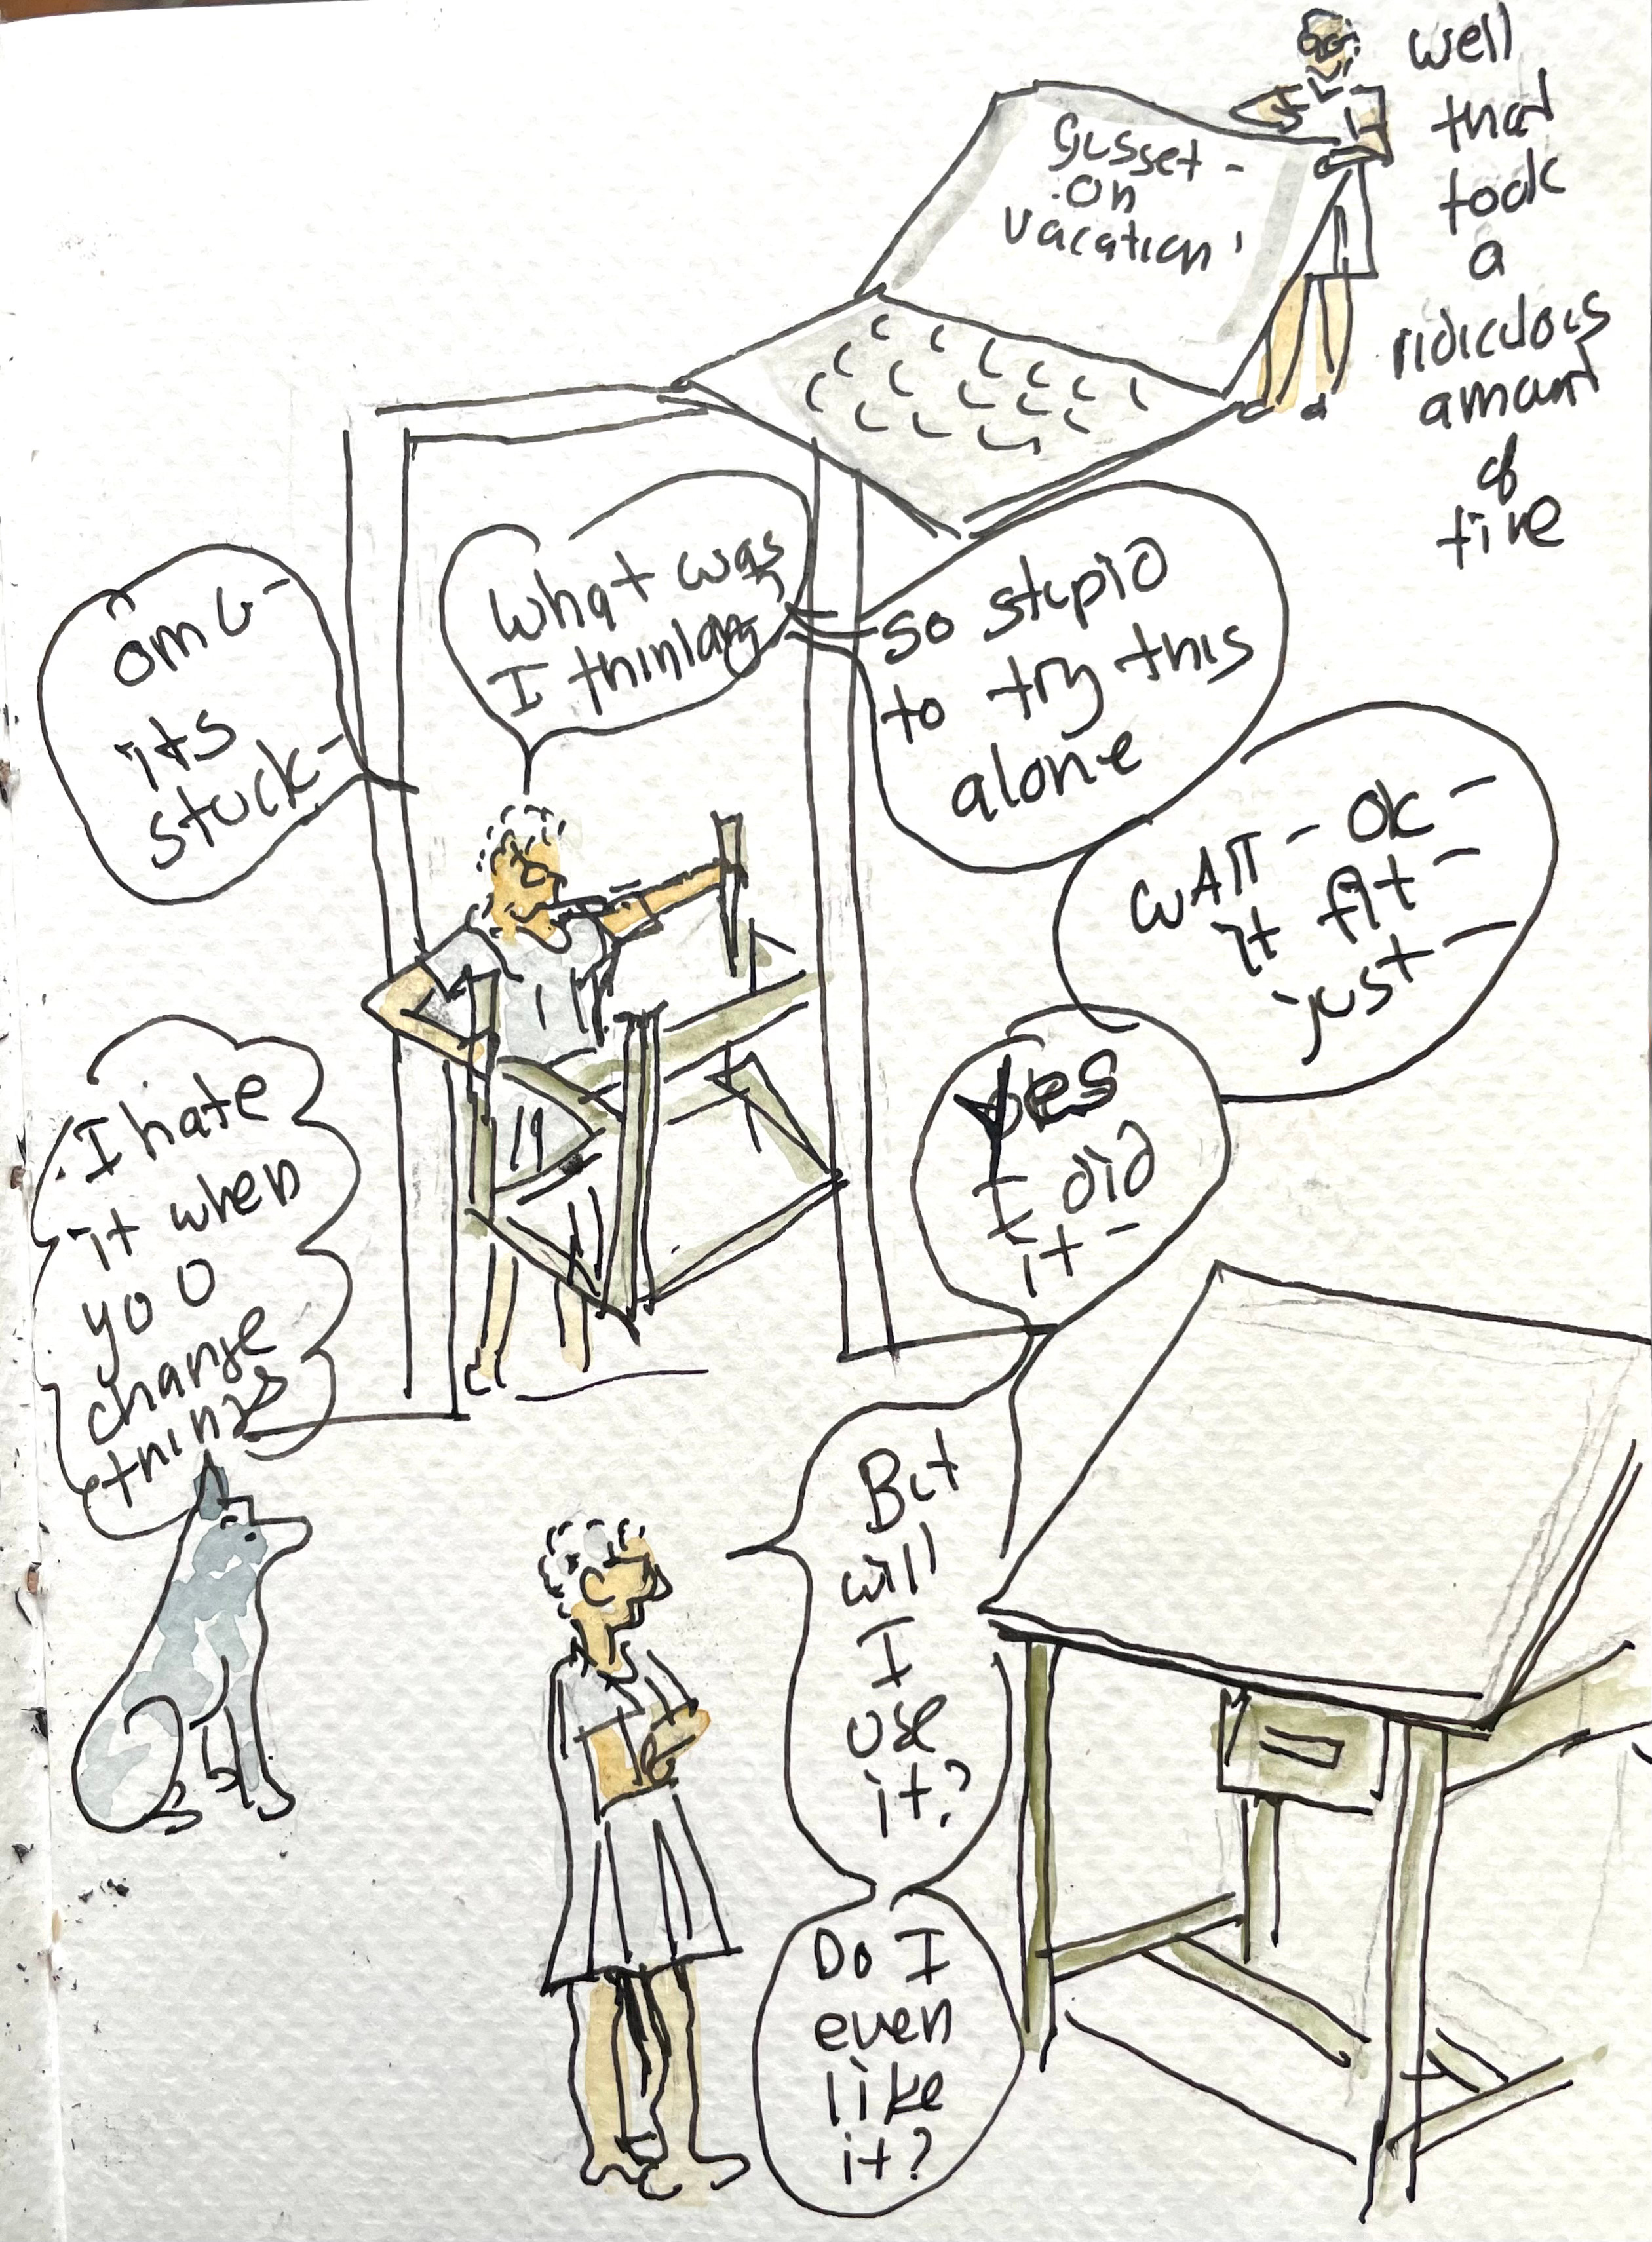 Gusset -
on
vacation'
well
that
took
a
ridiculous
amount
of
time
omG -
its
stuck -
What was
I thinking
so stupid
to try this
alone
WAIT - OK -
it fit -
just -
Yes
I did
it -
I hate
it when
yoU
change
things
But
will
I
use
it?
Do I
even
like
it?